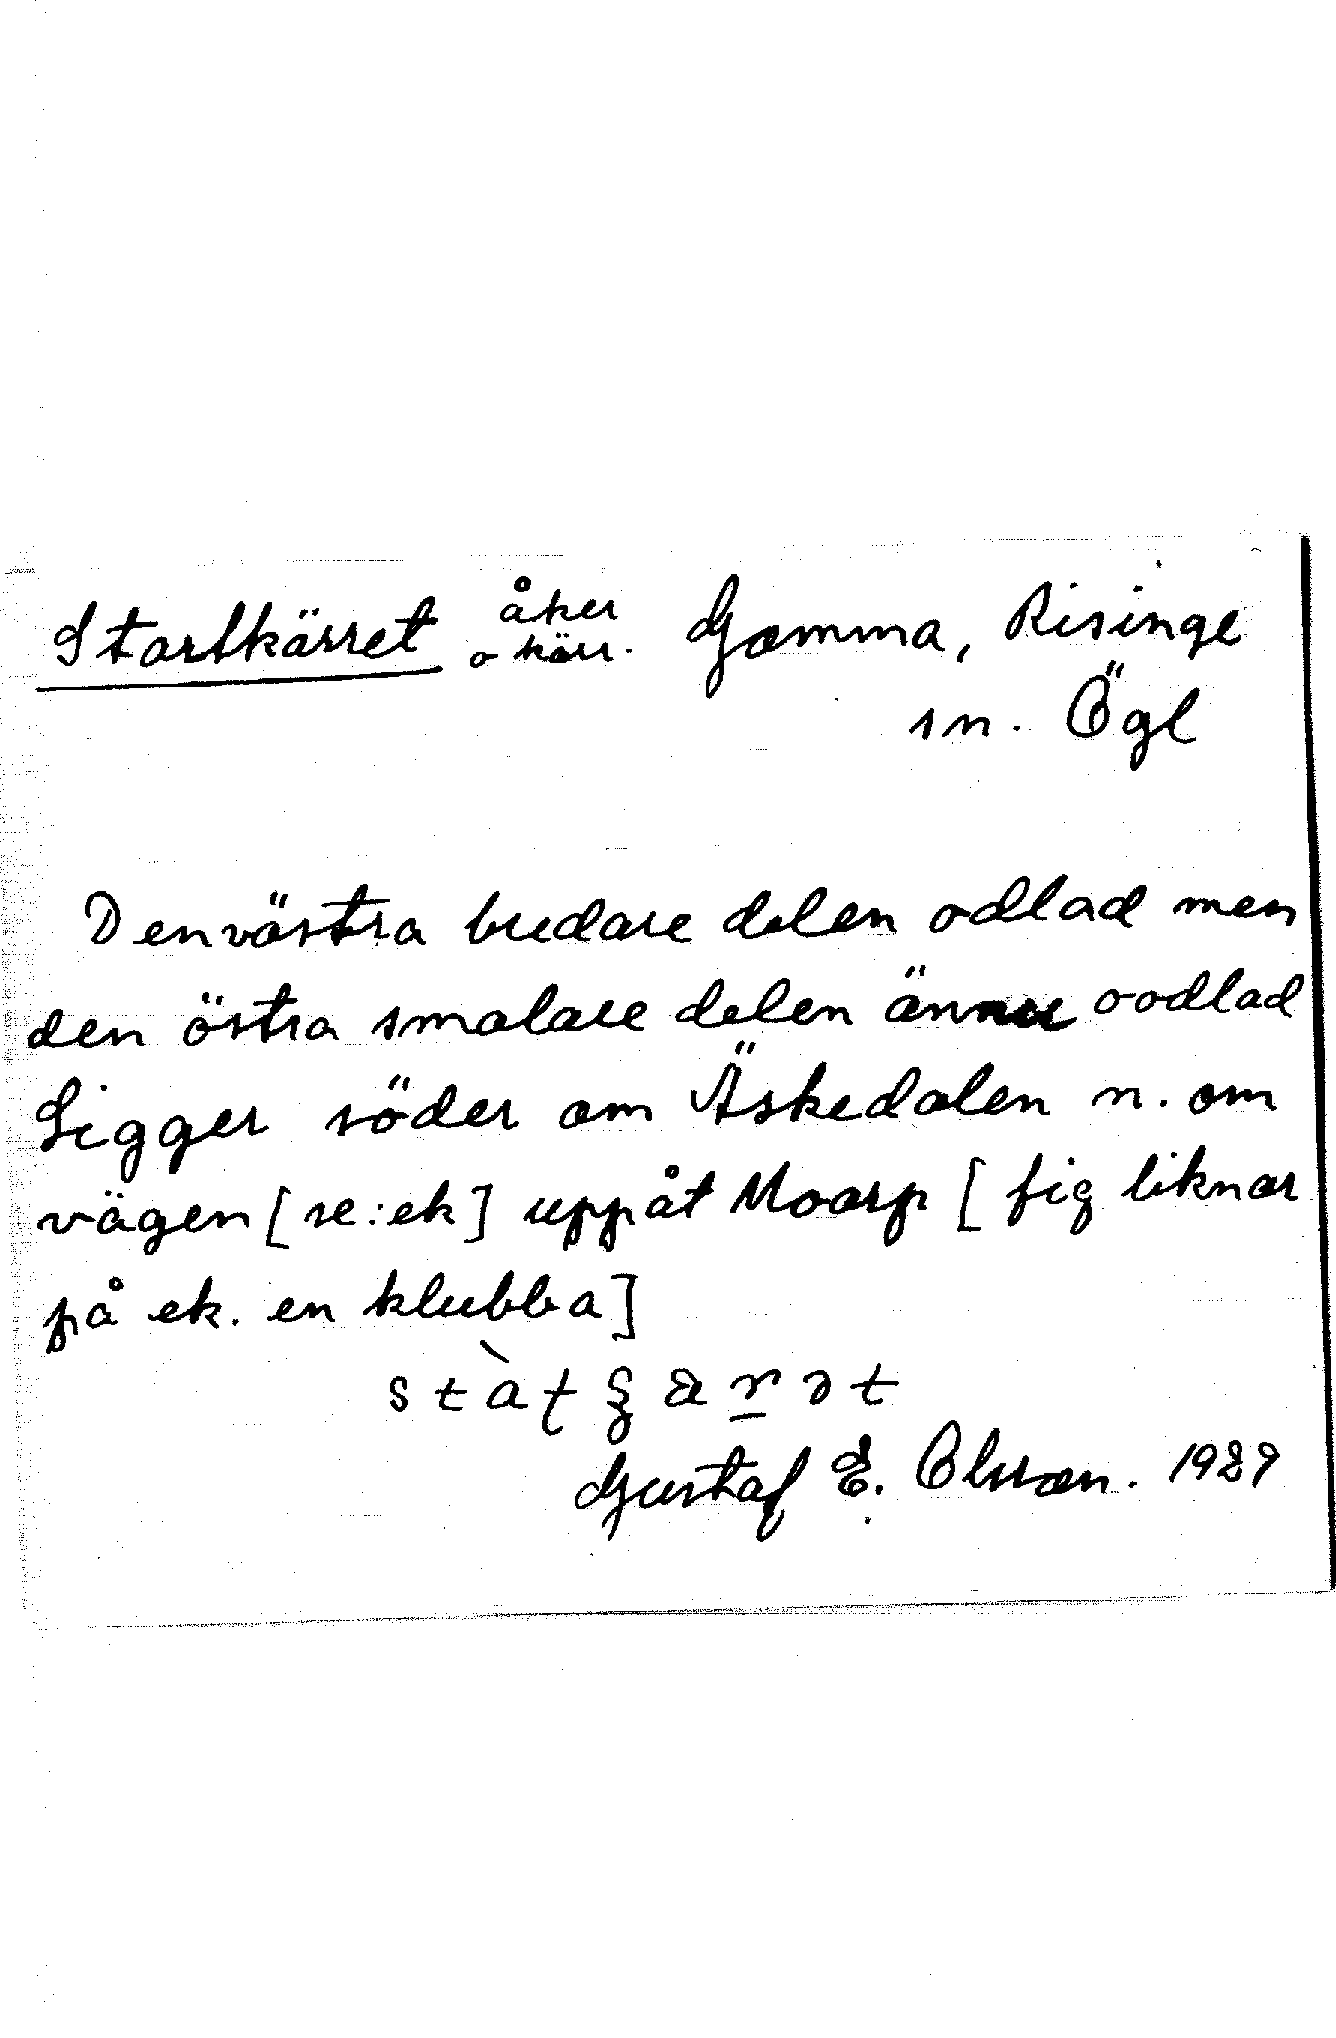 Startkärret åker
o kärr. Gomma, Risinge
sn. Ögl
Den västra bredare delen odlad men
den östra smalare delen ännu oodlad
Ligger söder om Äskedalen n. om
vägen [se: ek] uppåt Moarp [fig liknar
på ek. en klubba]
Gustaf E. Olsson. 1929